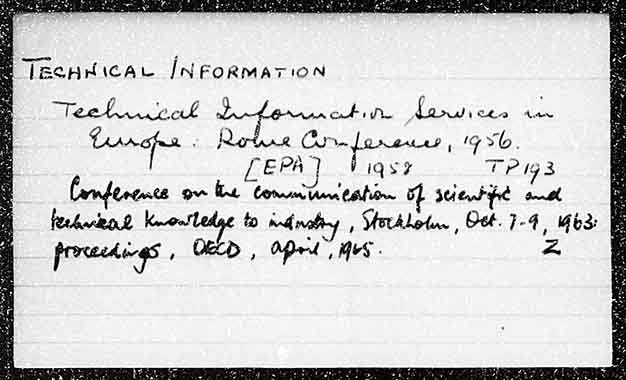 TECHNICAL INFORMATION
Technical Information Services in
Europe: Rome Conference, 1956.
[EPA] 1958 TP193
Conference on the communication of scientific and
technical knowledge to industry, Stockholm, Oct. 7-9, 1963:
proceedings, OECD, April, 1965. Z